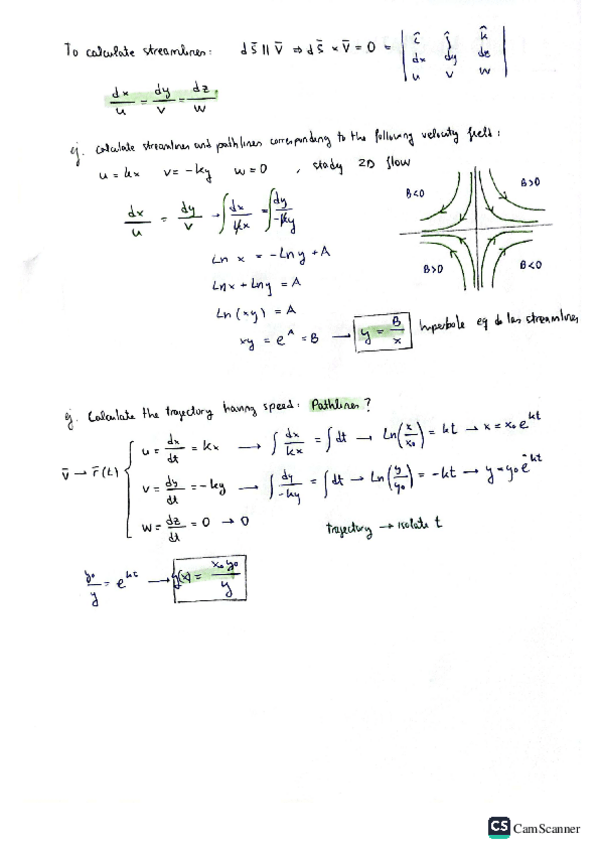 To calculate streamlines: dS̄ || V̄ ⇒ dS̄ × V̄ = 0 = | î ĵ k̂ |
| dx dy dz |
| u v w |
dx/u = dy/v = dz/w
ej. Calculate streamlines and pathlines corresponding to the following velocity field:
u = kx v = -ky w = 0 , study 2D flow
B<0 B>0
B>0 B<0
dx/u = dy/v → ∫dx/kx = ∫dy/-ky
Ln x = -Ln y + A
Ln x + Ln y = A
Ln (xy) = A
xy = e^A = B → y = B/x hiperbole eq de las streamlines
ej. Calculate the trajectory having speed: Pathlines?
V̄ → r̄(t)
u = dx/dt = kx → ∫dx/kx = ∫dt → Ln(x/x₀) = kt → x = x₀e^kt
v = dy/dt = -ky → ∫dy/-ky = ∫dt → Ln(y/y₀) = -kt → y = y₀e^-kt
w = dz/dt = 0 → 0 trajectory → isolate t
y₀/y = e^kt → y(x) = x₀y₀/y
CS CamScanner